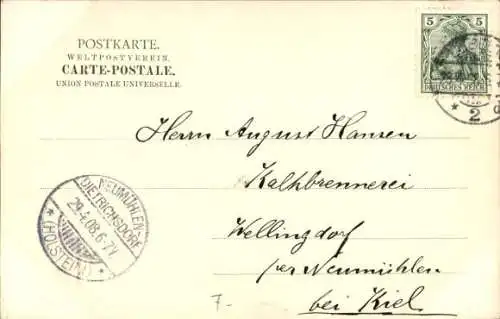 POSTKARTE.
WELTPOSTVEREIN.
CARTE-POSTALE.
UNION POSTALE UNIVERSELLE.
5 5
DEUTSCHES REICH
* 2
Herrn August Hansen
Kalkbrennerei
Wellingdorf
per Neumühlen
bei Kiel
NEUMÜHLEN-
DIETRICHSDORF
29.4.08.6-7V
* (HOLSTEIN) *
7-